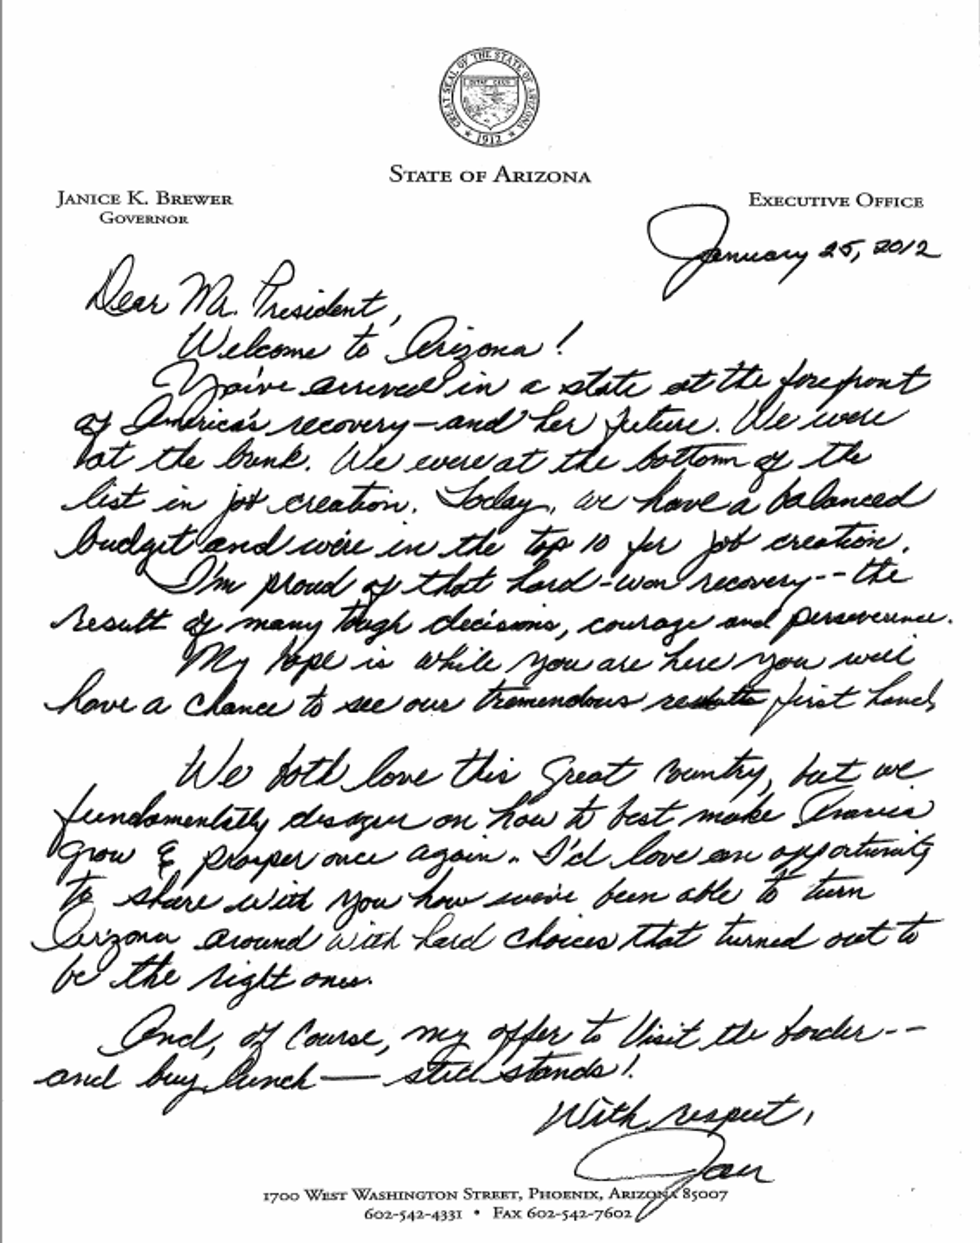 GREAT SEAL OF THE STATE OF ARIZONA
DITAT DEUS
1912
STATE OF ARIZONA
JANICE K. BREWER
GOVERNOR
EXECUTIVE OFFICE
January 25, 2012
Dear Mr. President,
Welcome to Arizona!
You've arrived in a state at the forefront
of America's recovery — and her future. We were
at the brink. We were at the bottom of the
list in job creation. Today, we have a balanced
budget and we're in the top 10 for job creation.
I'm proud of that hard-won recovery -- the
result of many tough decisions, courage and perseverence.
My hope is while you are here you will
have a chance to see our tremendous results first hand,
We both love this great country, but we
fundamentally disagree on how to best make America
grow & prosper once again. I'd love an opportunity
to share with you how we've been able to turn
Arizona around with hard choices that turned out to
be the right ones.
And, of course, my offer to visit the border --
and buy lunch — still stands!
With respect,
Jan
1700 WEST WASHINGTON STREET, PHOENIX, ARIZONA 85007
602-542-4331 • FAX 602-542-7602